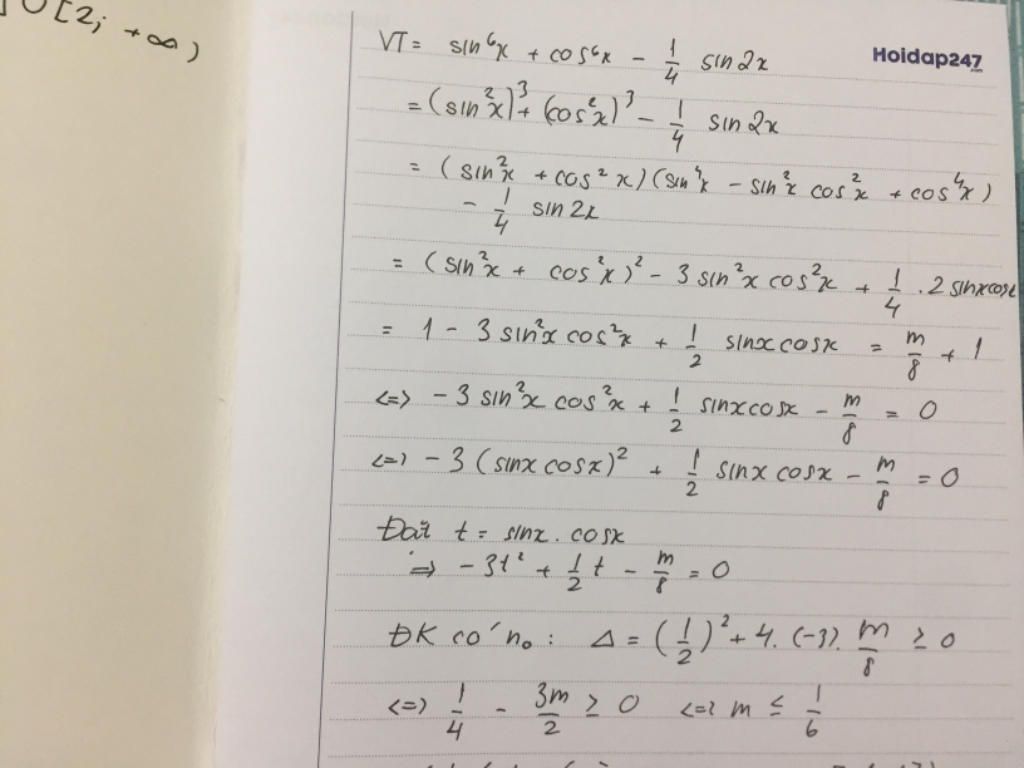 ] ∪ [2; +∞)
VT = sin⁶x + cos⁶x - 1/4 sin2x
Hoidap247.com
= (sin²x)³ + (cos²x)³ - 1/4 sin2x
= (sin²x + cos²x)(sin⁴x - sin²x cos²x + cos⁴x)
- 1/4 sin2x
= (sin²x + cos²x)² - 3 sin²x cos²x + 1/4 . 2 sinxcosx
= 1 - 3 sin²x cos²x + 1/2 sinxcosx = m/8 + 1
<=> -3 sin²x cos²x + 1/2 sinxcosx - m/8 = 0
<=> -3 (sinx cosx)² + 1/2 sinx cosx - m/8 = 0
Đặt t = sinx . cosx
=> -3t² + 1/2 t - m/8 = 0
ĐK có n₀ : Δ = (1/2)² + 4. (-3). m/8 ≥ 0
<=> 1/4 - 3m/2 ≥ 0 <=> m ≤ 1/6